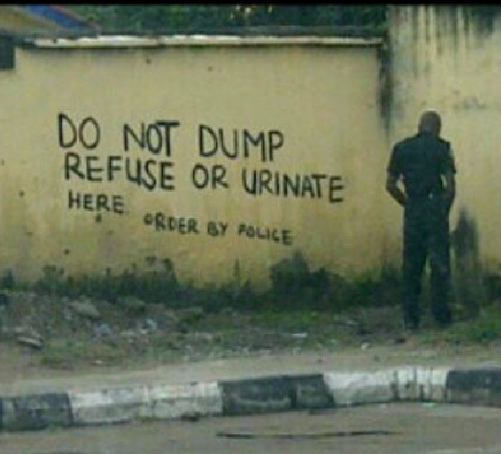 DO NOT DUMP
REFUSE OR URINATE
HERE. ORDER BY POLICE